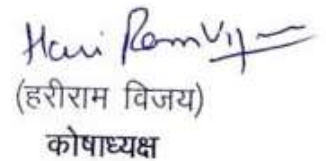 Hari Ram Vij
(हरीराम विजय)
कोषाध्यक्ष